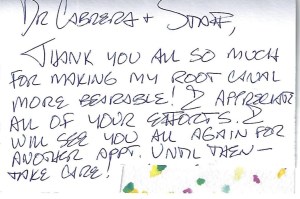 DR CABRERA & STAFF,
THANK YOU ALL SO MUCH
FOR MAKING MY ROOT CANAL
MORE BEARABLE! I APPRECIATE
ALL OF YOUR EFFORTS. I
WILL SEE YOU ALL AGAIN FOR
ANOTHER APPT. UNTIL THEN—
TAKE CARE!